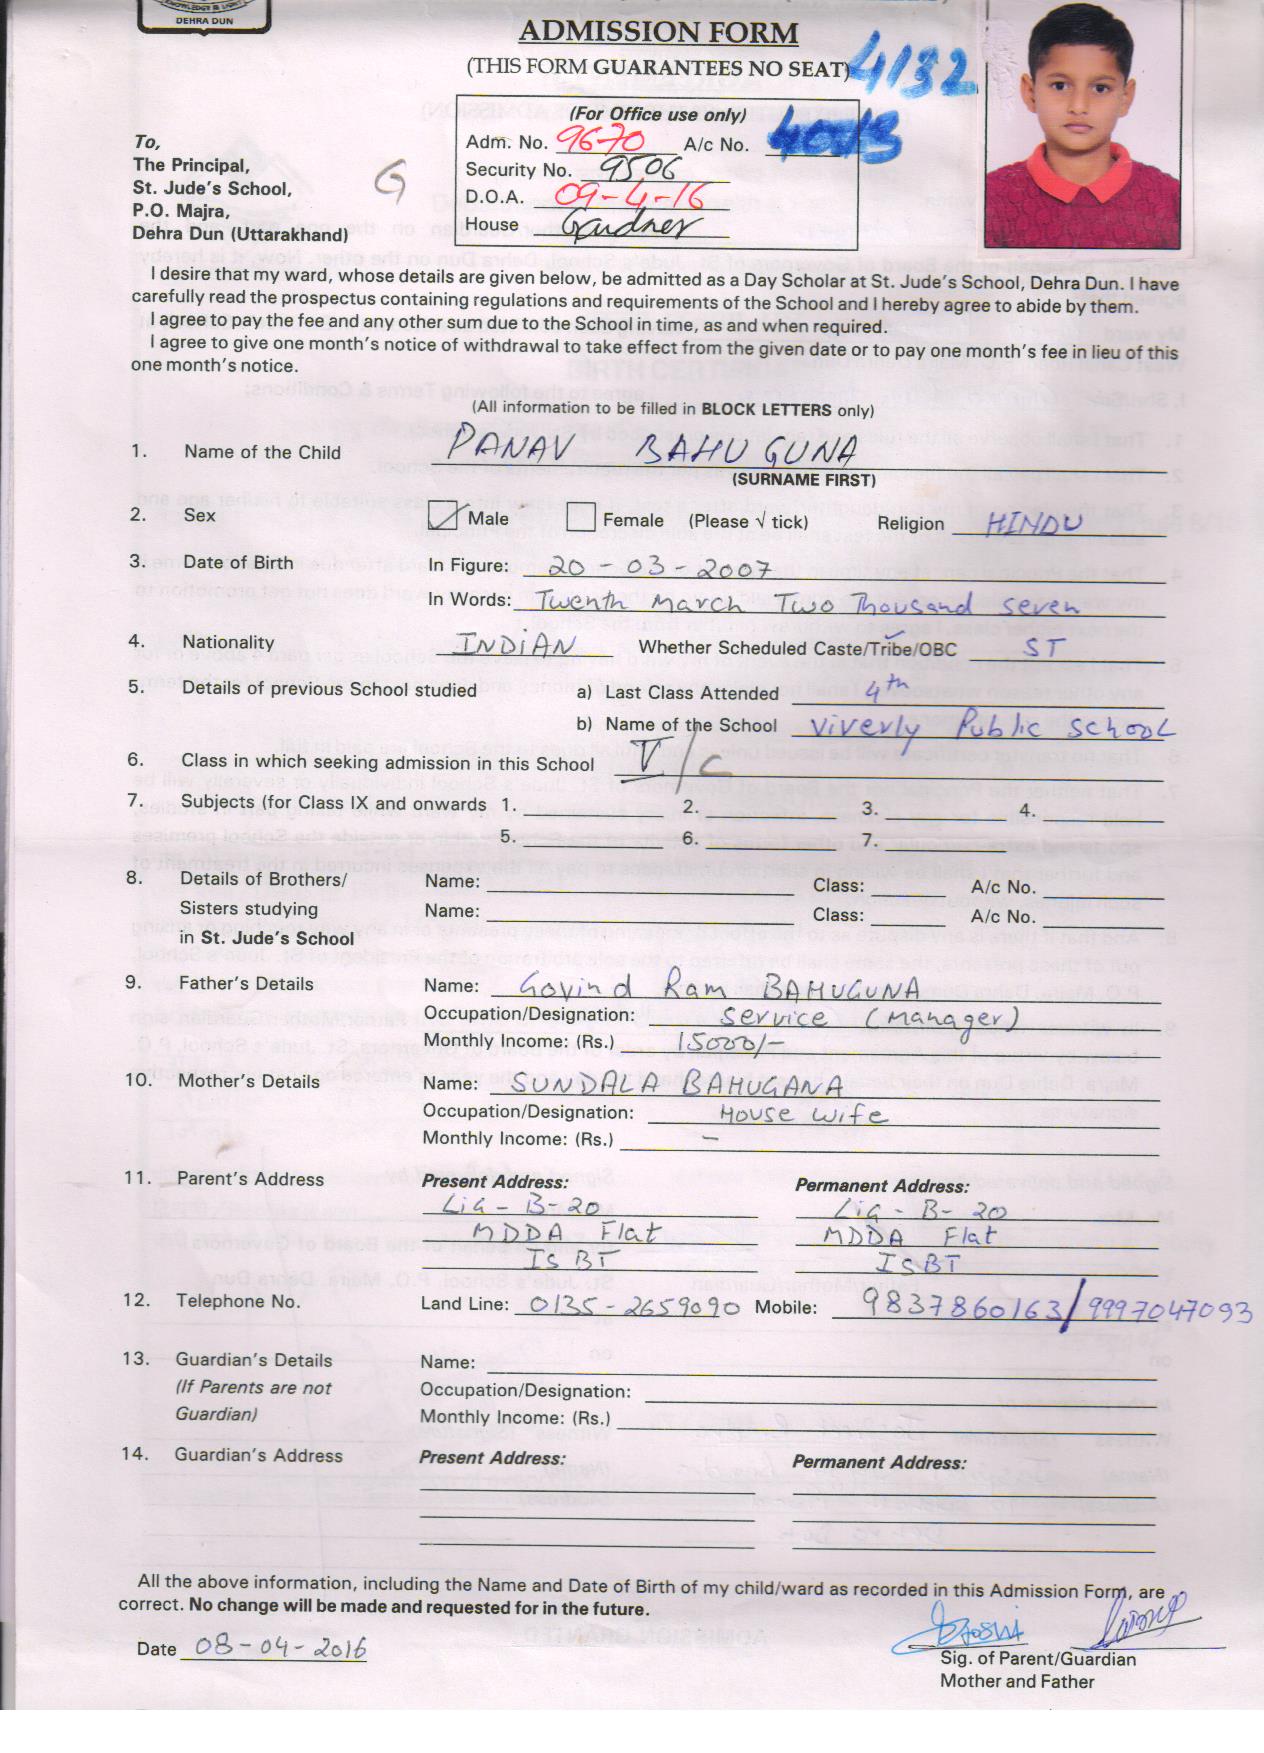 DEHRA DUN
ADMISSION FORM
(THIS FORM GUARANTEES NO SEAT)
4132
(For Office use only)
Adm. No. 9670 A/c No. 40713
Security No. 9506
D.O.A. 09-4-16
House Gardner
To,
The Principal,
St. Jude's School,
P.O. Majra,
Dehra Dun (Uttarakhand)
G
I desire that my ward, whose details are given below, be admitted as a Day Scholar at St. Jude's School, Dehra Dun. I have
carefully read the prospectus containing regulations and requirements of the School and I hereby agree to abide by them.
I agree to pay the fee and any other sum due to the School in time, as and when required.
I agree to give one month's notice of withdrawal to take effect from the given date or to pay one month's fee in lieu of this
one month's notice.
(All information to be filled in BLOCK LETTERS only)
1. Name of the Child PANAV BAHUGUNA
(SURNAME FIRST)
2. Sex Male Female (Please √ tick) Religion HINDU
3. Date of Birth In Figure: 20-03-2007
In Words: Twenth March Two Thousand seven
4. Nationality INDIAN Whether Scheduled Caste/Tribe/OBC ST
5. Details of previous School studied a) Last Class Attended 4th
b) Name of the School Viverly Public School
6. Class in which seeking admission in this School V/C
7. Subjects (for Class IX and onwards 1. 2. 3. 4.
5. 6. 7.
8. Details of Brothers/ Name: Class: A/c No.
Sisters studying Name: Class: A/c No.
in St. Jude's School
9. Father's Details Name: Govind Ram BAHUGUNA
Occupation/Designation: Service (Manager)
Monthly Income: (Rs.) 15000/-
10. Mother's Details Name: SUNDALA BAHUGANA
Occupation/Designation: House wife
Monthly Income: (Rs.) –
11. Parent's Address Present Address: Permanent Address:
Lig - B-20 Lig - B-20
MDDA Flat MDDA Flat
ISBT ISBT
12. Telephone No. Land Line: 0135-2659090 Mobile: 9837860163/9997047093
13. Guardian's Details Name:
(If Parents are not Occupation/Designation:
Guardian) Monthly Income: (Rs.)
14. Guardian's Address Present Address: Permanent Address:
All the above information, including the Name and Date of Birth of my child/ward as recorded in this Admission Form, are
correct. No change will be made and requested for in the future.
Date 08-04-2016
Sig. of Parent/Guardian
Mother and Father